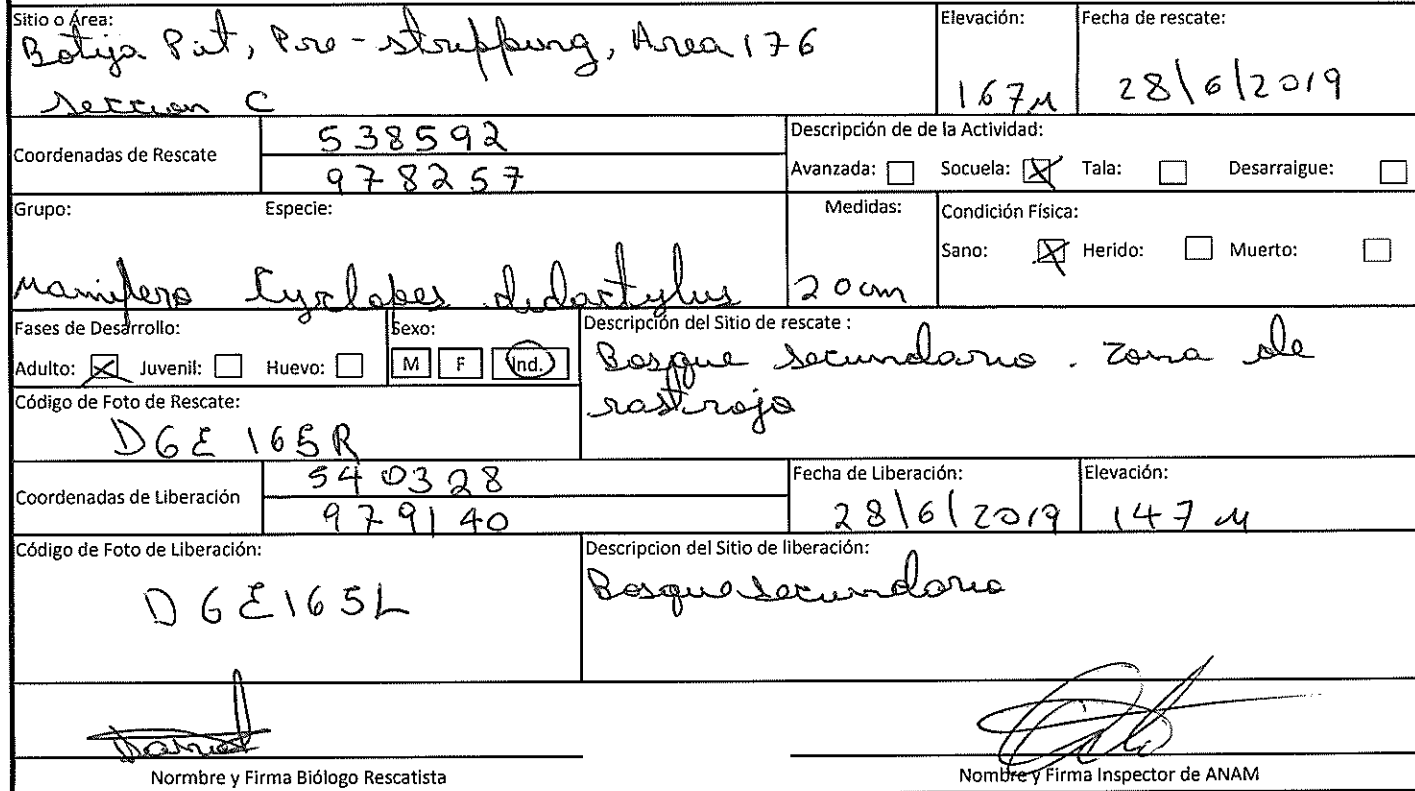 Sitio o Área:
Botija Pit, Pre-stripping, Area 176
Seccion C
Elevación:
167M
Fecha de rescate:
28/6/2019
Coordenadas de Rescate
538592
978257
Descripción de de la Actividad:
Avanzada: Socuela: Tala: Desarraigue:
Grupo: Especie:
Mamifero Cyclopes didactylus
Medidas:
20cm
Condición Física:
Sano: Herido: Muerto:
Fases de Desarrollo:
Adulto: Juvenil: Huevo:
Sexo:
M F Ind.
Descripción del Sitio de rescate :
Bosque secundario. zona de
rastrojo
Código de Foto de Rescate:
DGE 165R
Coordenadas de Liberación
540328
979140
Fecha de Liberación:
28/6/2019
Elevación:
147 M
Código de Foto de Liberación:
DGE165L
Descripcion del Sitio de liberación:
Bosque secundario
Normbre y Firma Biólogo Rescatista
Nombre y Firma Inspector de ANAM